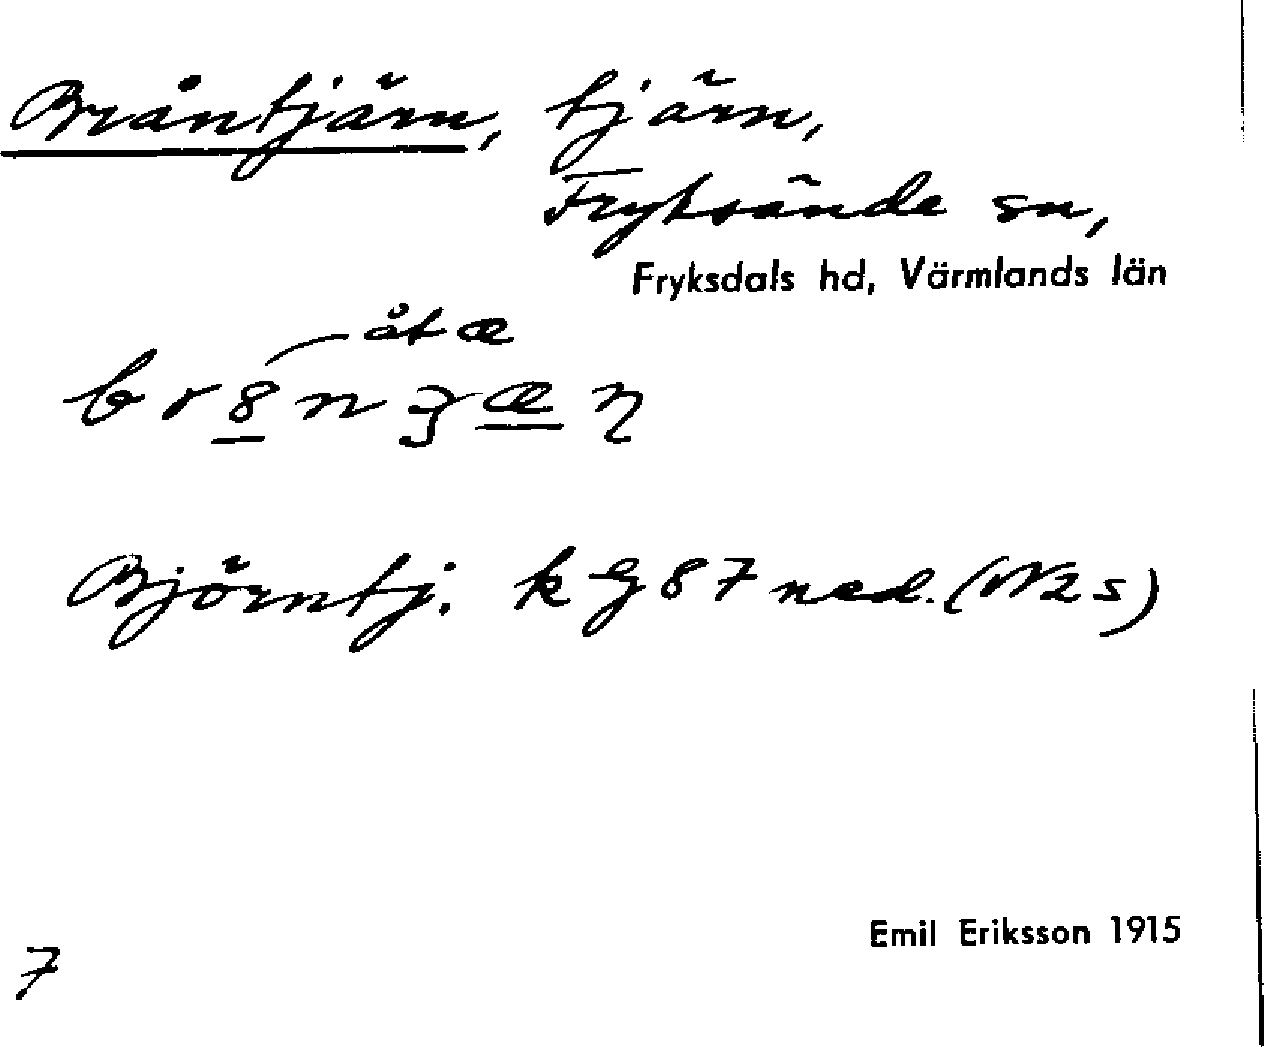 Bråntjärn, tjärn,
Fryksände sn,
Fryksdals hd, Värmlands län
åt æ
br8nʒæŋ
Björntj. k G87 ned. (N2s)
Emil Eriksson 1915
7